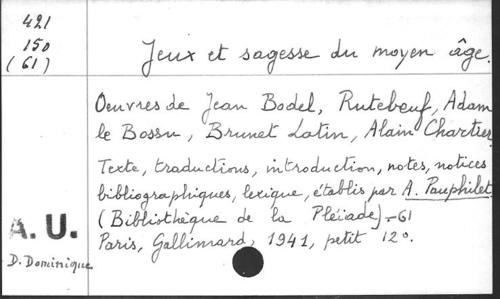 421
150
(61)
Jeux et sagesse du moyen âge.
Oeuvres de Jean Bodel, Rutebeuf, Adam
le Bossu, Brunet Latin, Alain Chartier
Texte, traductions, introduction, notes, notices
bibliographiques, lexique, établis par A. Pauphilet
(Bibliothèque de la Pléiade) - 61
Paris, Gallimard, 1941, petit 12°.
A. U.
D. Dominique